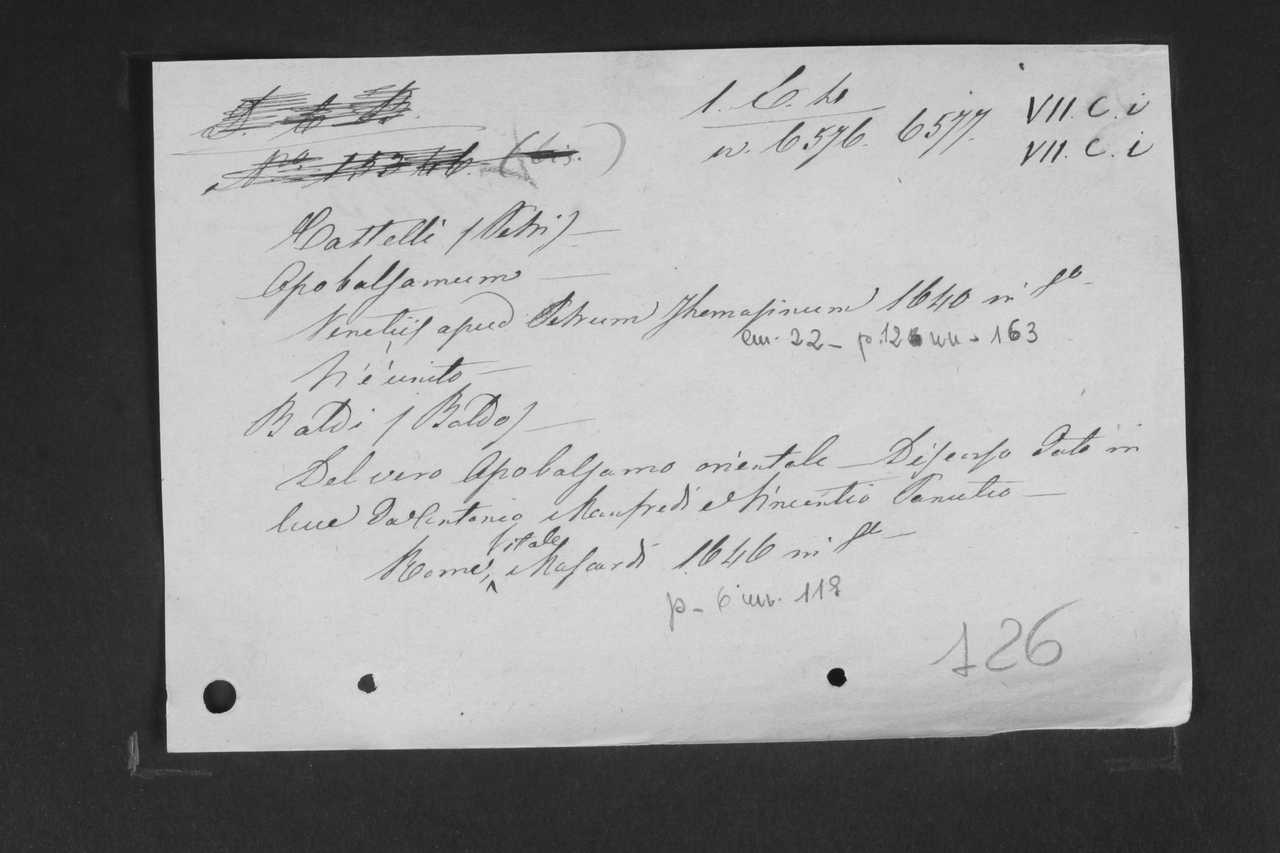 1. C. 4
n. 6576. 6577. VII. C. i
VII. C. i
Castelli (Petri) —
Opobalsamum —
Venetiis, apud Petrum Thomasinum 1640 in 4º
cm. 22 – p. 12 nn - 163
Vi è unito —
Baldi (Baldo) —
Del vero Opobalsamo orientale — Discorso dato in
luce da Antonio Manfredi e Vincentio Panutio —
Rome, Vitale Mascardi 1646 in 4º —
p – 6 nn. 118
126